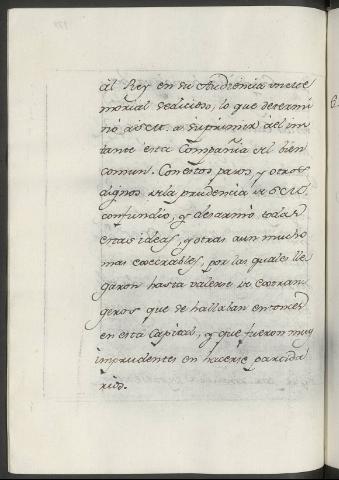 al Rey en su Audiencia un me=
morial sedicioso, lo que determi
nó á S.M. a suprimir al ins
tante esta Compañia al bien
comun. Con estos pasos, y otros
dignos de la prudencia de S.M.
confundio, y desarmó todas
estas ideas, y otras aun mucho
mas execrables, por las quales lle
garon hasta valerse de Estran
geros que se hallaban entonces
en esta Capital, y que fueron muy
imprudentes en hacerse partida
rios.